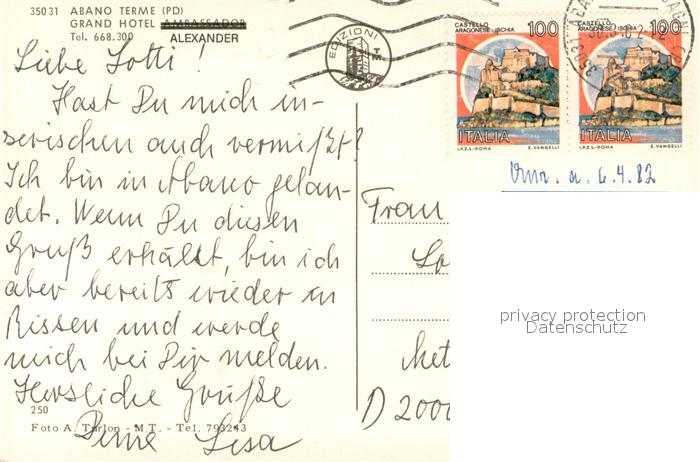 35031 ABANO TERME (PD)
GRAND HOTEL AMBASSADOR
Tel. 668.300 ALEXANDER
EDIZIONI
T.M.
CASTELLO
ARAGONESE - ISCHIA 100
ITALIA
I.P.Z.S.-ROMA E. VANGELLI
CASTELLO
ARAGONESE - ISCHIA 100
ITALIA
I.P.Z.S.-ROMA E. VANGELLI
Liebe Lotti!
Hast Du mich in-
zwischen auch vermißt?
Ich bin in Abano gelan-
det. Wenn Du diesen
Gruß erhälst, bin ich
aber bereits wieder in
Rissen und werde
mich bei Dir melden.
Herzliche Grüße
Deine Lisa
250
Foto A. Turlon - M.T. - Tel. 793243
a. 6.4.82
Frau
D 2000
privacy protection
Datenschutz